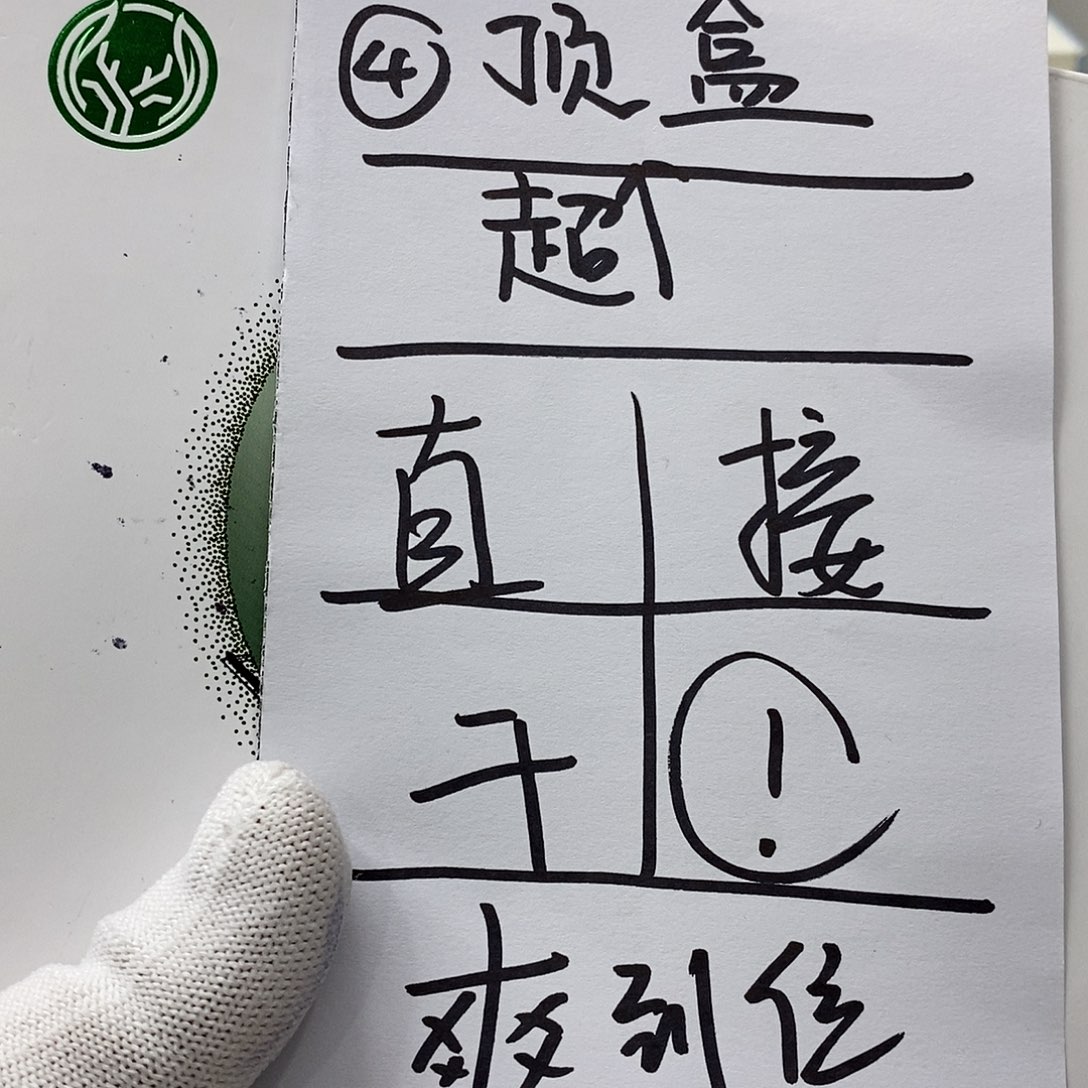 ④顶盒
超
直接
干!
爽到位